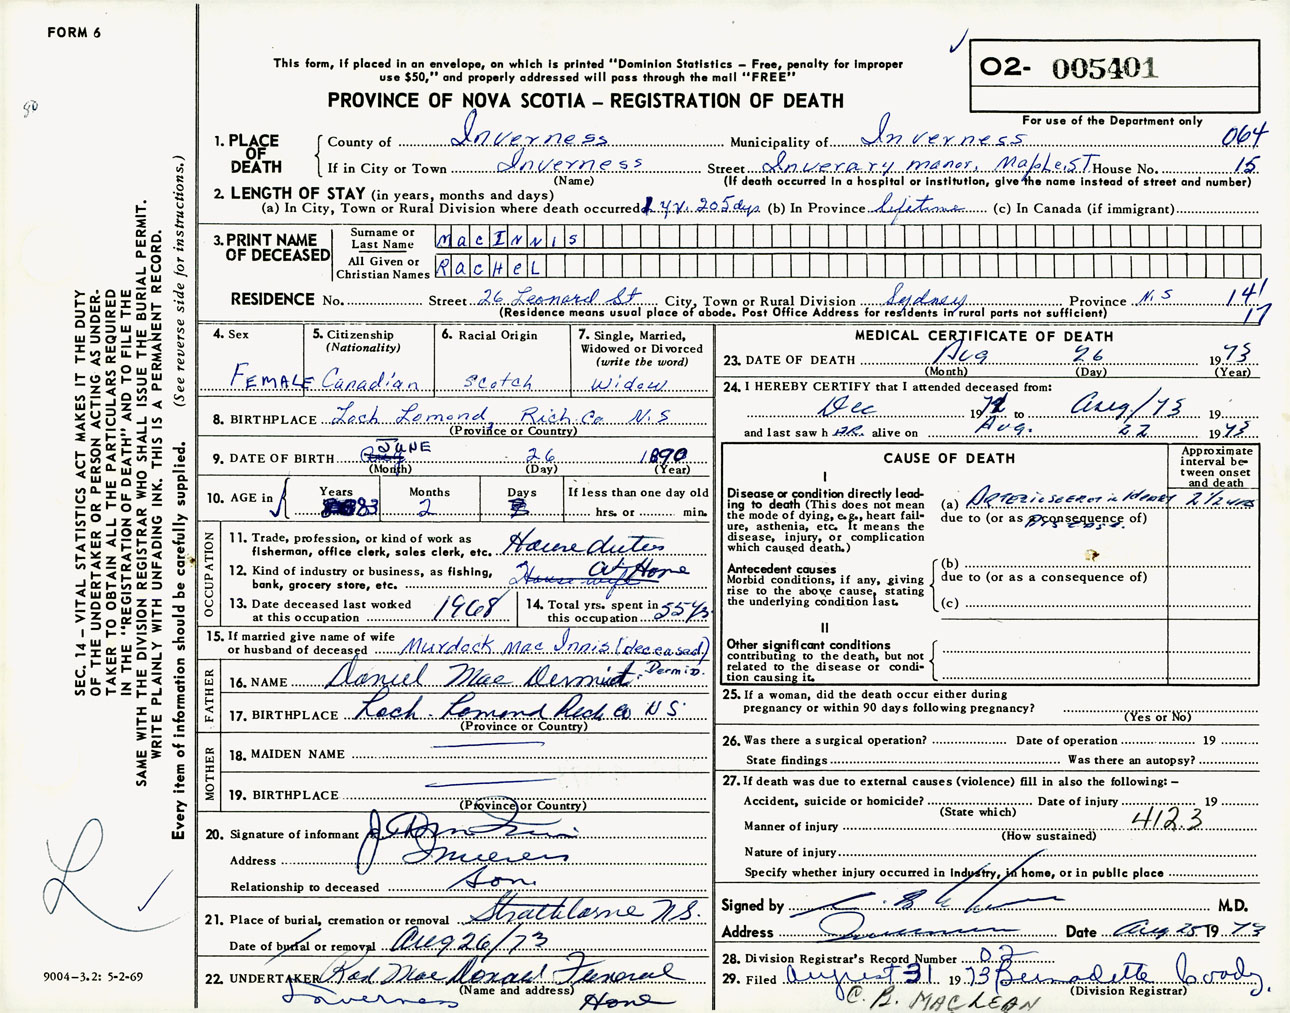 FORM 6
This form, if placed in an envelope, on which is printed "Dominion Statistics – Free, penalty for improper
use $50," and properly addressed will pass through the mail "FREE"
PROVINCE OF NOVA SCOTIA – REGISTRATION OF DEATH
O2- 005401
For use of the Department only
1. PLACE OF DEATH
County of Inverness Municipality of Inverness 064
If in City or Town Inverness Street Inverary manor, Maple St House No. 15
(Name) (If death occurred in a hospital or institution, give the name instead of street and number)
2. LENGTH OF STAY (in years, months and days)
(a) In City, Town or Rural Division where death occurred 1 yr. 205 dys (b) In Province lifetime (c) In Canada (if immigrant)
3. PRINT NAME OF DECEASED
Surname or Last Name MacINNIS
All Given or Christian Names RACHEL
RESIDENCE No. Street 26 Leonard St City, Town or Rural Division Sydney Province N.S 141
(Residence means usual place of abode. Post Office Address for residents in rural parts not sufficient) 17
4. Sex FEMALE
5. Citizenship (Nationality) Canadian
6. Racial Origin Scotch
7. Single, Married, Widowed or Divorced (write the word) Widow
8. BIRTHPLACE Loch Lomond, Rich. Co N.S
(Province or Country)
9. DATE OF BIRTH JUNE 26 1890
(Month) (Day) (Year)
10. AGE in Years 83 Months 2 Days If less than one day old hrs. or min.
OCCUPATION
11. Trade, profession, or kind of work as fisherman, office clerk, sales clerk, etc. House duties
12. Kind of industry or business, as fishing, bank, grocery store, etc. House wife At Home
13. Date deceased last worked at this occupation 1968
14. Total yrs. spent in this occupation 55 yrs
15. If married give name of wife or husband of deceased Murdock Mac Innis (deceased)
FATHER
16. NAME Daniel Mac Dermid Dermid.
17. BIRTHPLACE Loch Lomond Rich Co N S
(Province or Country)
MOTHER
18. MAIDEN NAME
19. BIRTHPLACE
(Province or Country)
20. Signature of informant
Address Inverness
Relationship to deceased Son
21. Place of burial, cremation or removal Strathlorne N.S.
Date of burial or removal Aug 26/73
22. UNDERTAKER Rod MacDonald Funeral
(Name and address)
Inverness Home
MEDICAL CERTIFICATE OF DEATH
23. DATE OF DEATH Aug 26 1973
(Month) (Day) (Year)
24. I HEREBY CERTIFY that I attended deceased from:
Dec 1972 to Aug/73 19
and last saw h ER alive on Aug. 22 1973
CAUSE OF DEATH
Approximate interval between onset and death
I
Disease or condition directly leading to death (This does not mean the mode of dying, e.g., heart failure, asthenia, etc. It means the disease, injury, or complication which caused death.)
(a) Arteriosclerotic Heart 2 1/2 yrs
due to (or as a consequence of) Disease.
Antecedent causes
Morbid conditions, if any, giving rise to the above cause, stating the underlying condition last.
(b)
due to (or as a consequence of)
(c)
II
Other significant conditions contributing to the death, but not related to the disease or condition causing it.
25. If a woman, did the death occur either during pregnancy or within 90 days following pregnancy?
(Yes or No)
26. Was there a surgical operation? Date of operation 19
State findings Was there an autopsy?
27. If death was due to external causes (violence) fill in also the following: –
Accident, suicide or homicide? Date of injury 19
(State which)
Manner of injury 412.3
(How sustained)
Nature of injury
Specify whether injury occurred in Industry, in home, or in public place
Signed by M.D.
Address Inverness Date Aug 25 1973
28. Division Registrar's Record Number 02
29. Filed August 31 1973 Bernadette Coady.
(Division Registrar)
C. B. MACLEAN
SEC. 14 – VITAL STATISTICS ACT MAKES IT THE DUTY
OF THE UNDERTAKER OR PERSON ACTING AS UNDER-
TAKER TO OBTAIN ALL THE PARTICULARS REQUIRED
IN THE "REGISTRATION OF DEATH" AND TO FILE THE
SAME WITH THE DIVISION REGISTRAR WHO SHALL ISSUE THE BURIAL PERMIT.
WRITE PLAINLY WITH UNFADING INK. THIS IS A PERMANENT RECORD.
Every item of information should be carefully supplied. (See reverse side for instructions.)
9004-3.2: 5-2-69